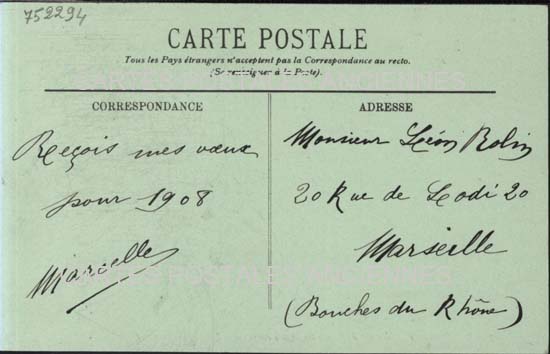 752294
CARTE POSTALE
Tous les Pays étrangers n'acceptent pas la Correspondance au recto.
(Se renseigner à la Poste).
CARTES POSTALES ANCIENNES
CORRESPONDANCE
Reçois mes vœux
pour 1908
Marcelle
ADRESSE
Monsieur Léon Rolin
20 Rue de Lodi 20
Marseille
(Bouches du Rhône)
CARTES POSTALES ANCIENNES